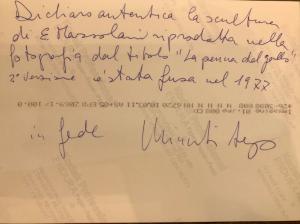 Dichiaro autentica la scultura
di E Marsolari riprodotta nella
fotografia dal titolo "La penna del gallo"
2ª versione è stata fusa nel 1977
in fede